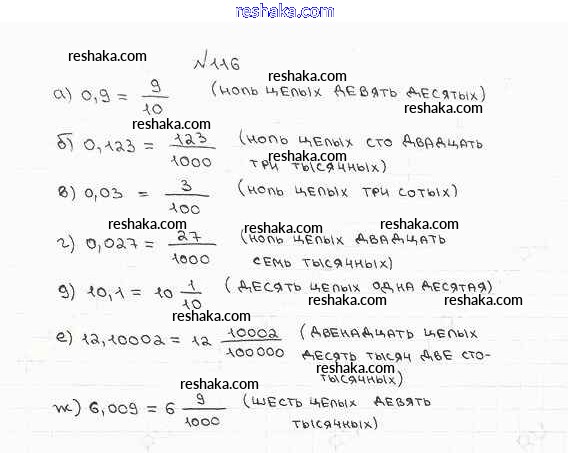 reshaka.com
reshaka.com
№116
reshaka.com
а) 0,9 = 9/10 (ноль целых девять десятых)
reshaka.com reshaka.com
б) 0,123 = 123/1000 (ноль целых сто двадцать
reshaka.com
три тысячных)
reshaka.com
в) 0,03 = 3/100 (ноль целых три сотых)
reshaka.com reshaka.com reshaka.com
г) 0,027 = 27/1000 (ноль целых двадцать
семь тысячных)
д) 10,1 = 10 1/10 (десять целых одна десятая)
reshaka.com reshaka.com
reshaka.com
е) 12,10002 = 12 10002/100000 (двенадцать целых
десять тысяч две сто-
reshaka.com
тысячных)
reshaka.com
ж) 6,009 = 6 9/1000 (шесть целых девять
тысячных)